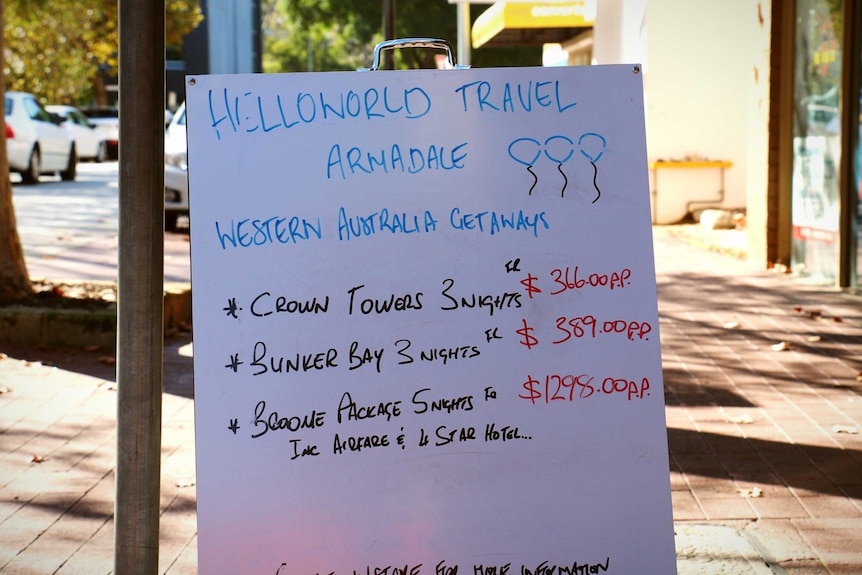 HELLOWORLD TRAVEL
ARMADALE
WESTERN AUSTRALIA GETAWAYS
* CROWN TOWERS 3 NIGHTS FR $366.00 P.P.
* BUNKER BAY 3 NIGHTS FR $389.00 P.P.
* BROOME PACKAGE 5 NIGHTS FR $1298.00 P.P.
INC AIRFARE & 4 STAR HOTEL...
INSTORE FOR MORE INFORMATION